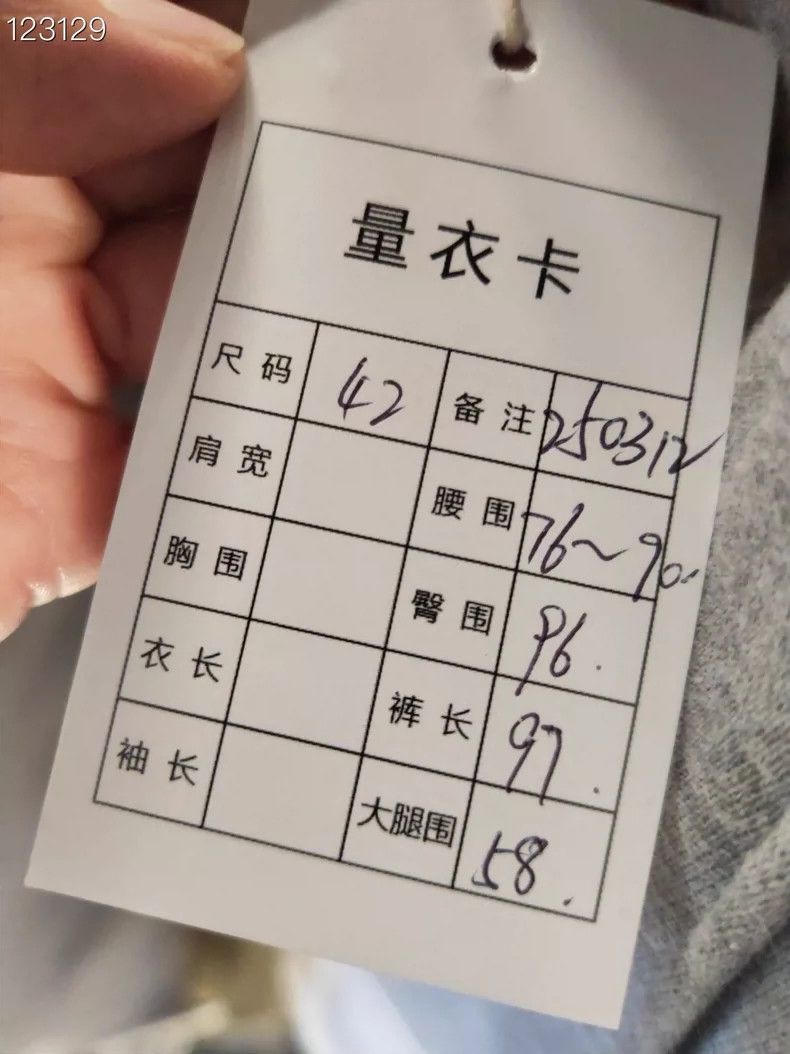 123129
量衣卡
尺码 42 备注 250312
肩宽 腰围 76~90.
胸围 臀围 96.
衣长 裤长 97.
袖长 大腿围 58.